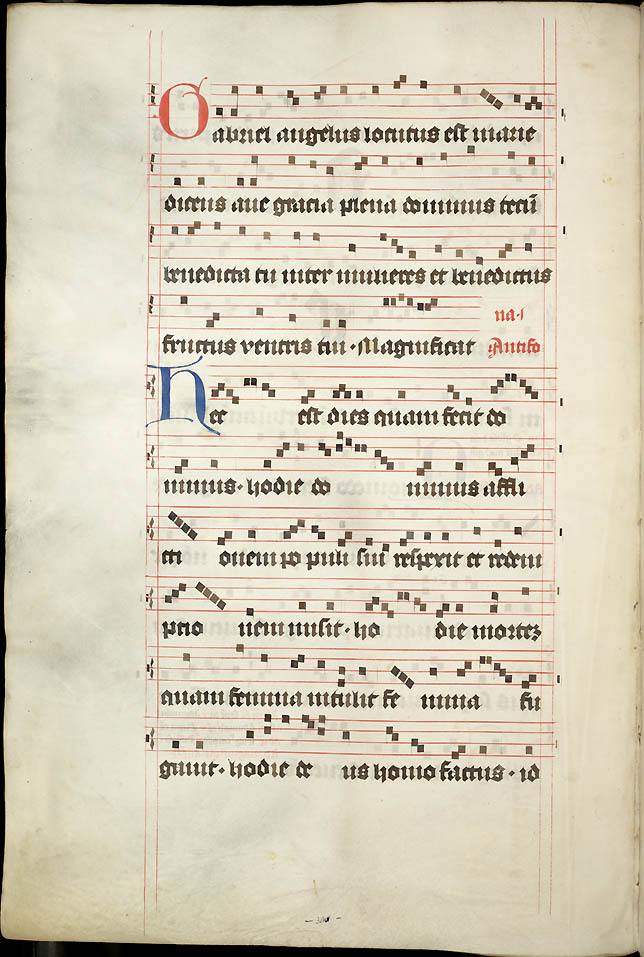 Gabriel angelus locutus est marie
dicens aue gracia plena dominus tecū
benedicta tu inter mulieres et benedictus
na·
fructus ventris tui · Magnificat Antifo
Hec est dies quam fecit do
minus · hodie do minus affli
cti onem po puli sui respexit et redem
ptio nem misit · ho die mortez
quam femina intulit fe mina fu
gauit · hodie de us homo factus · id